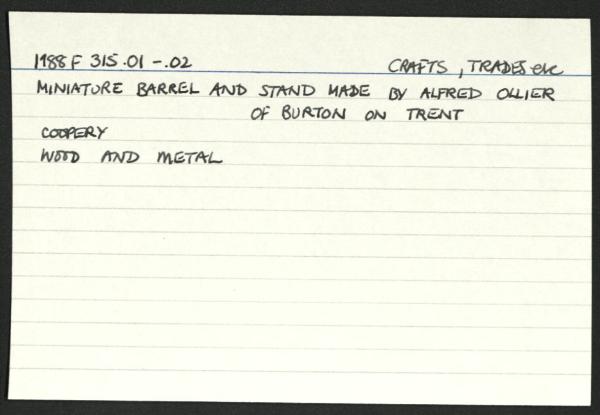 1988 F 315.01 -.02 CRAFTS, TRADES etc
MINIATURE BARREL AND STAND MADE BY ALFRED OLLIER
OF BURTON ON TRENT
COOPERY
WOOD AND METAL